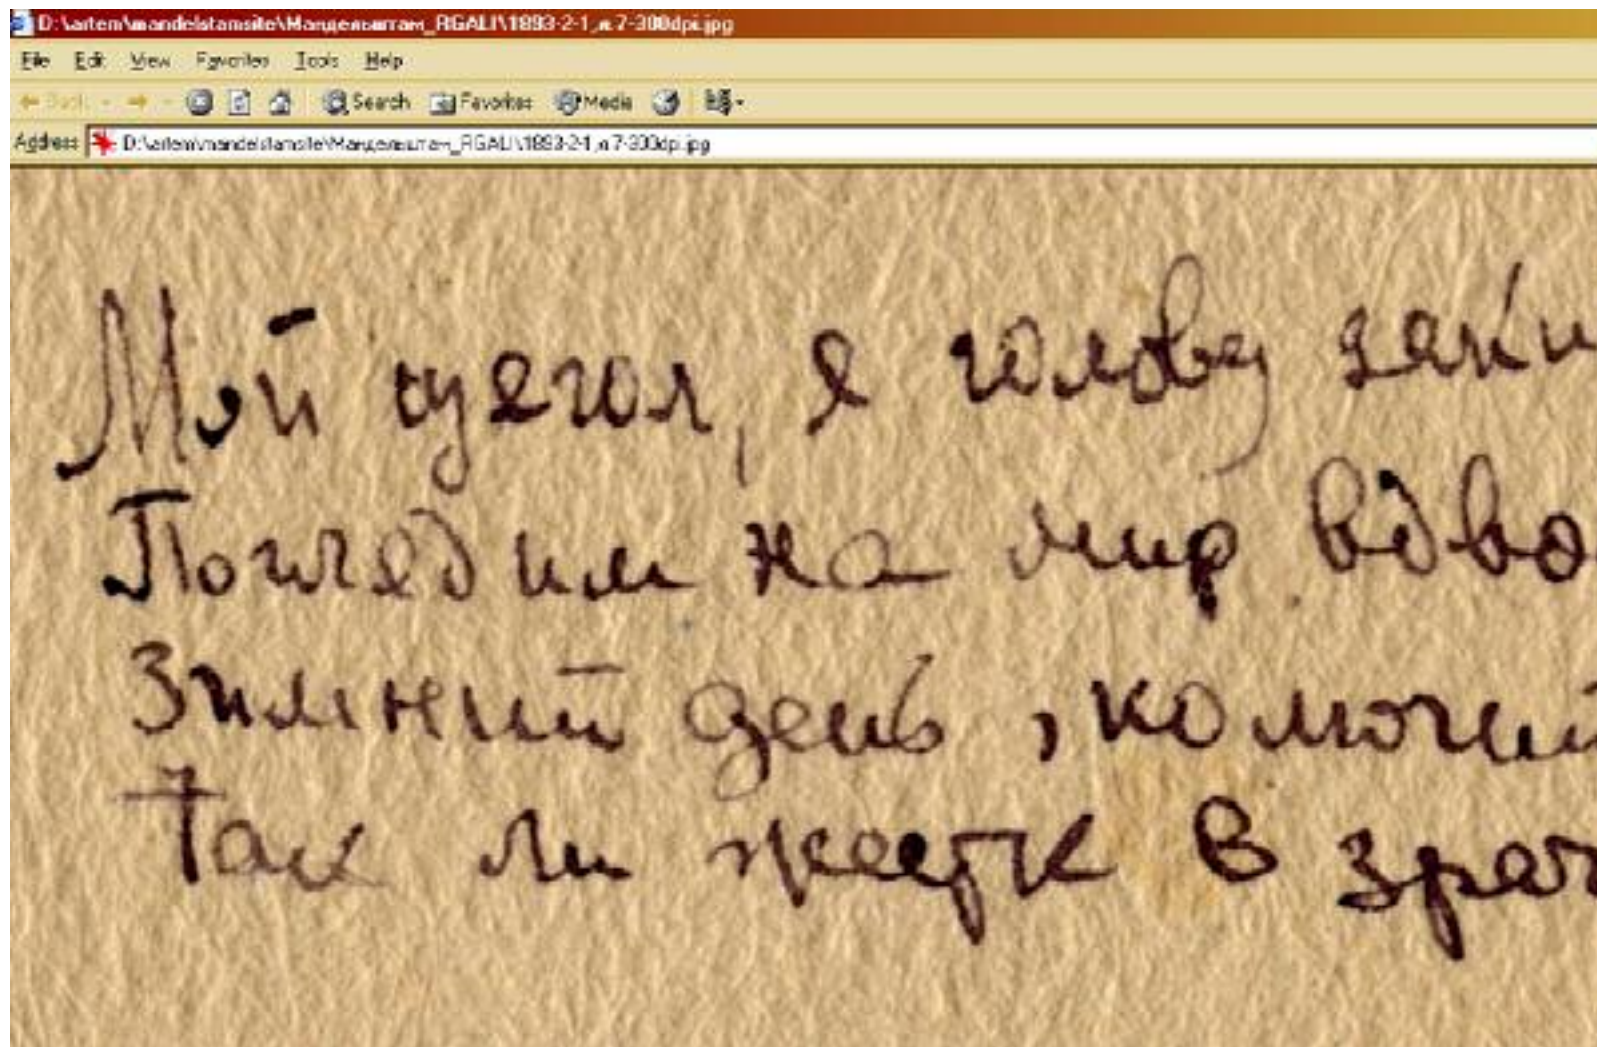 D:\artem\mandelstamsite\Мандельштам_RGALI\1893-2-1,л.7-300dpi.jpg
File Edit View Favorites Tools Help
Back Search Favorites Media
Address D:\artem\mandelstamsite\Мандельштам_RGALI\1893-2-1,л.7-300dpi.jpg
Мой щегол, я голову заки
Поглядим на мир вдво
Зимний день, колючий
Так ли жестк в зрач